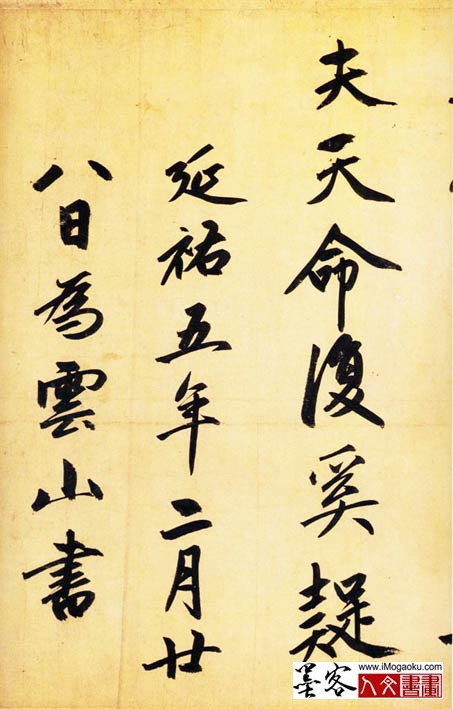 夫天命復奚疑
延祐五年二月廿
八日為雲山書
墨客
www.iMogaoku.com
人文書畫